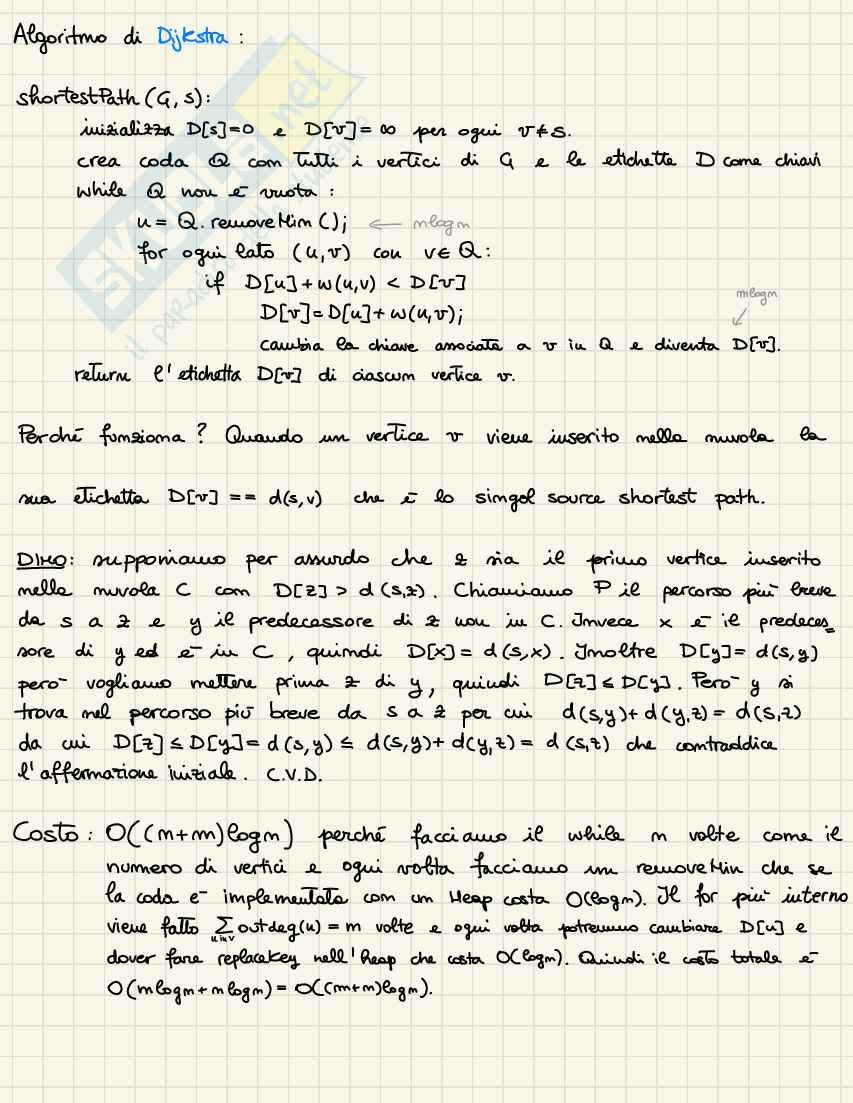 Algoritmo di Dijkstra :
shortestPath (G, s):
inizializza D[s]=0 e D[v]= ∞ per ogni v≠s.
crea coda Q con tutti i vertici di G e le etichette D come chiavi
while Q non è vuota :
u = Q. removeMin ( ); ← nlogn
for ogni lato (u,v) con v∈ Q:
if D[u]+w(u,v) < D[v]
D[v]=D[u]+w(u,v);
mlogn
cambia la chiave associata a v in Q e diventa D[v].
return l'etichetta D[v] di ciascun vertice v.
Perché funziona ? Quando un vertice v viene inserito nella nuvola la
sua etichetta D[v] == d(s,v) che è lo singol source shortest path.
DIMO: supponiamo per assurdo che z sia il primo vertice inserito
nella nuvola C con D[z] > d (s,z). Chiamiamo P il percorso più breve
da s a z e y il predecessore di z non in C. Invece x è il predeces_
sore di y ed è in C , quindi D[x] = d(s,x). Inoltre D[y]= d(s,y)
però vogliamo mettere prima z di y, quindi D[z] ≤ D[y]. Però y si
trova nel percorso più breve da s a z per cui d(s,y)+ d(y,z) = d(s,z)
da cui D[z] ≤ D[y]= d(s,y) ≤ d(s,y)+ d(y,z) = d(s,z) che contraddice
l'affermazione iniziale. C.V.D.
Costo : O((n+m)logn) perché facciamo il while n volte come il
numero di vertici e ogni volta facciamo un removeMin che se
la coda è implementata con un Heap costa O(logn). Il for più interno
viene fatto ∑ u in V outdeg(u) = m volte e ogni volta potremmo cambiare D[u] e
dover fare replaceKey nell'heap che costa O(logn). Quindi il costo totale è
O(nlogn + mlogn) = O((n+m)logn).
SKUOLA.net
il paradiso dello studente